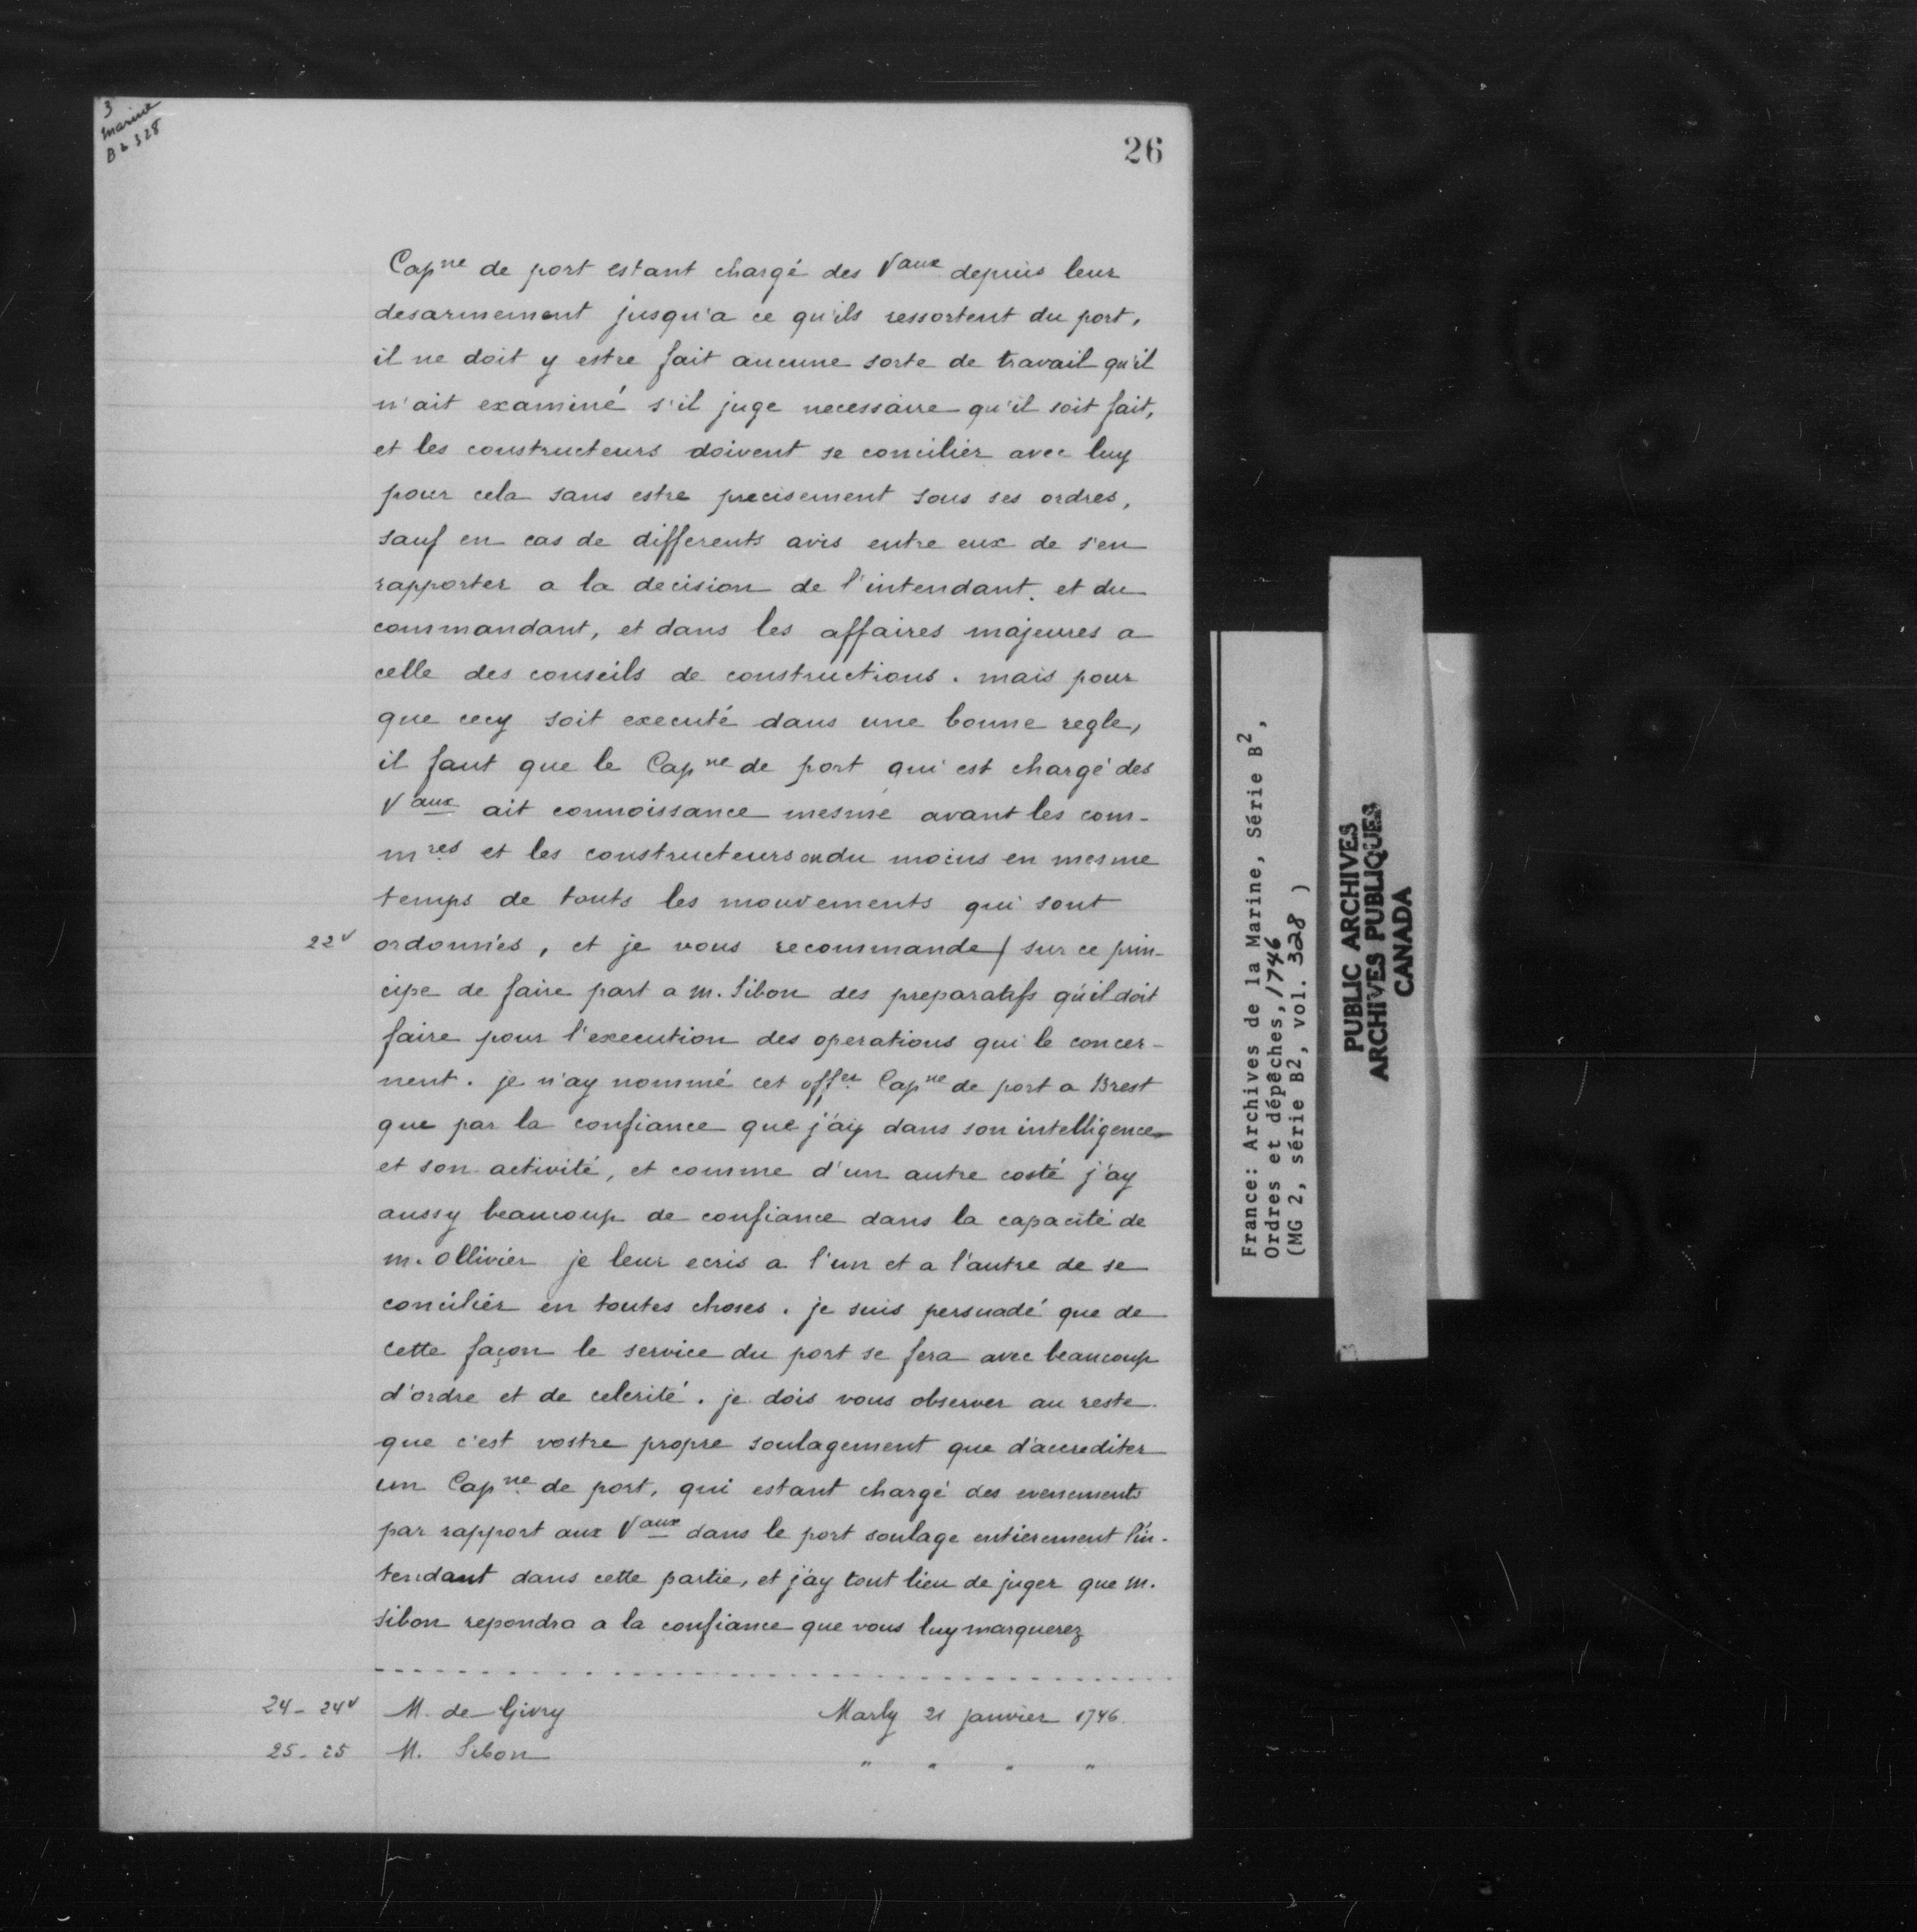 3
Marine
B2 328
26
Capne de port estant chargé des Vaux depuis leur
desarmement jusqu'a ce qu'ils ressortent du port,
il ne doit y estre fait aucune sorte de travail qu'il
n'ait examiné s'il juge necessaire qu'il soit fait,
et les constructeurs doivent se concilier avec luy
pour cela sans estre precisement sous ses ordres,
sauf en cas de differents avis entre eux de s'en
rapporter a la decision de l'intendant. et du
commandant, et dans les affaires majeures a
celle des conseils de constructions. mais pour
que cecy soit executé dans une bonne regle,
il faut que le Capne de port qui est chargé des
Vaux ait connoissance mesme avant les com-
mres et les constructeurs ou du moins en mesme
temps de touts les mouvements qui sont
22v ordonnés, et je vous recommande / sur ce prin-
cipe de faire part a m. Sibon des preparatifs qu'il doit
faire pour l'execution des operations qui le concer-
nent. je n'ay nommé cet offer Capne de port a Brest
que par la confiance que j'ay dans son intelligence
et son activité, et comme d'un autre costé j'ay
aussy beaucoup de confiance dans la capacité de
m. Ollivier je leur ecris a l'un et a l'autre de se
concilier en toutes choses. je suis persuadé que de
cette façon le service du port se fera avec beaucoup
d'ordre et de celerité. je dois vous observer au reste
que c'est vostre propre soulagement que d'accrediter
un Capne de port, qui estant chargé des evenements
par rapport aux Vaux dans le port soulage entierement l'in-
tendant dans cette partie, et j'ay tout lieu de juger que m.
Sibon repondra a la confiance que vous luy marquerez
24-24v M. de Givry Marly 21 janvier 1746.
25-25 M. Sibon " " " "
France: Archives de la Marine, Série B2,
Ordres et dépêches, 1746
(MG 2, série B2, vol. 328 )
PUBLIC ARCHIVES
ARCHIVES PUBLIQUES
CANADA